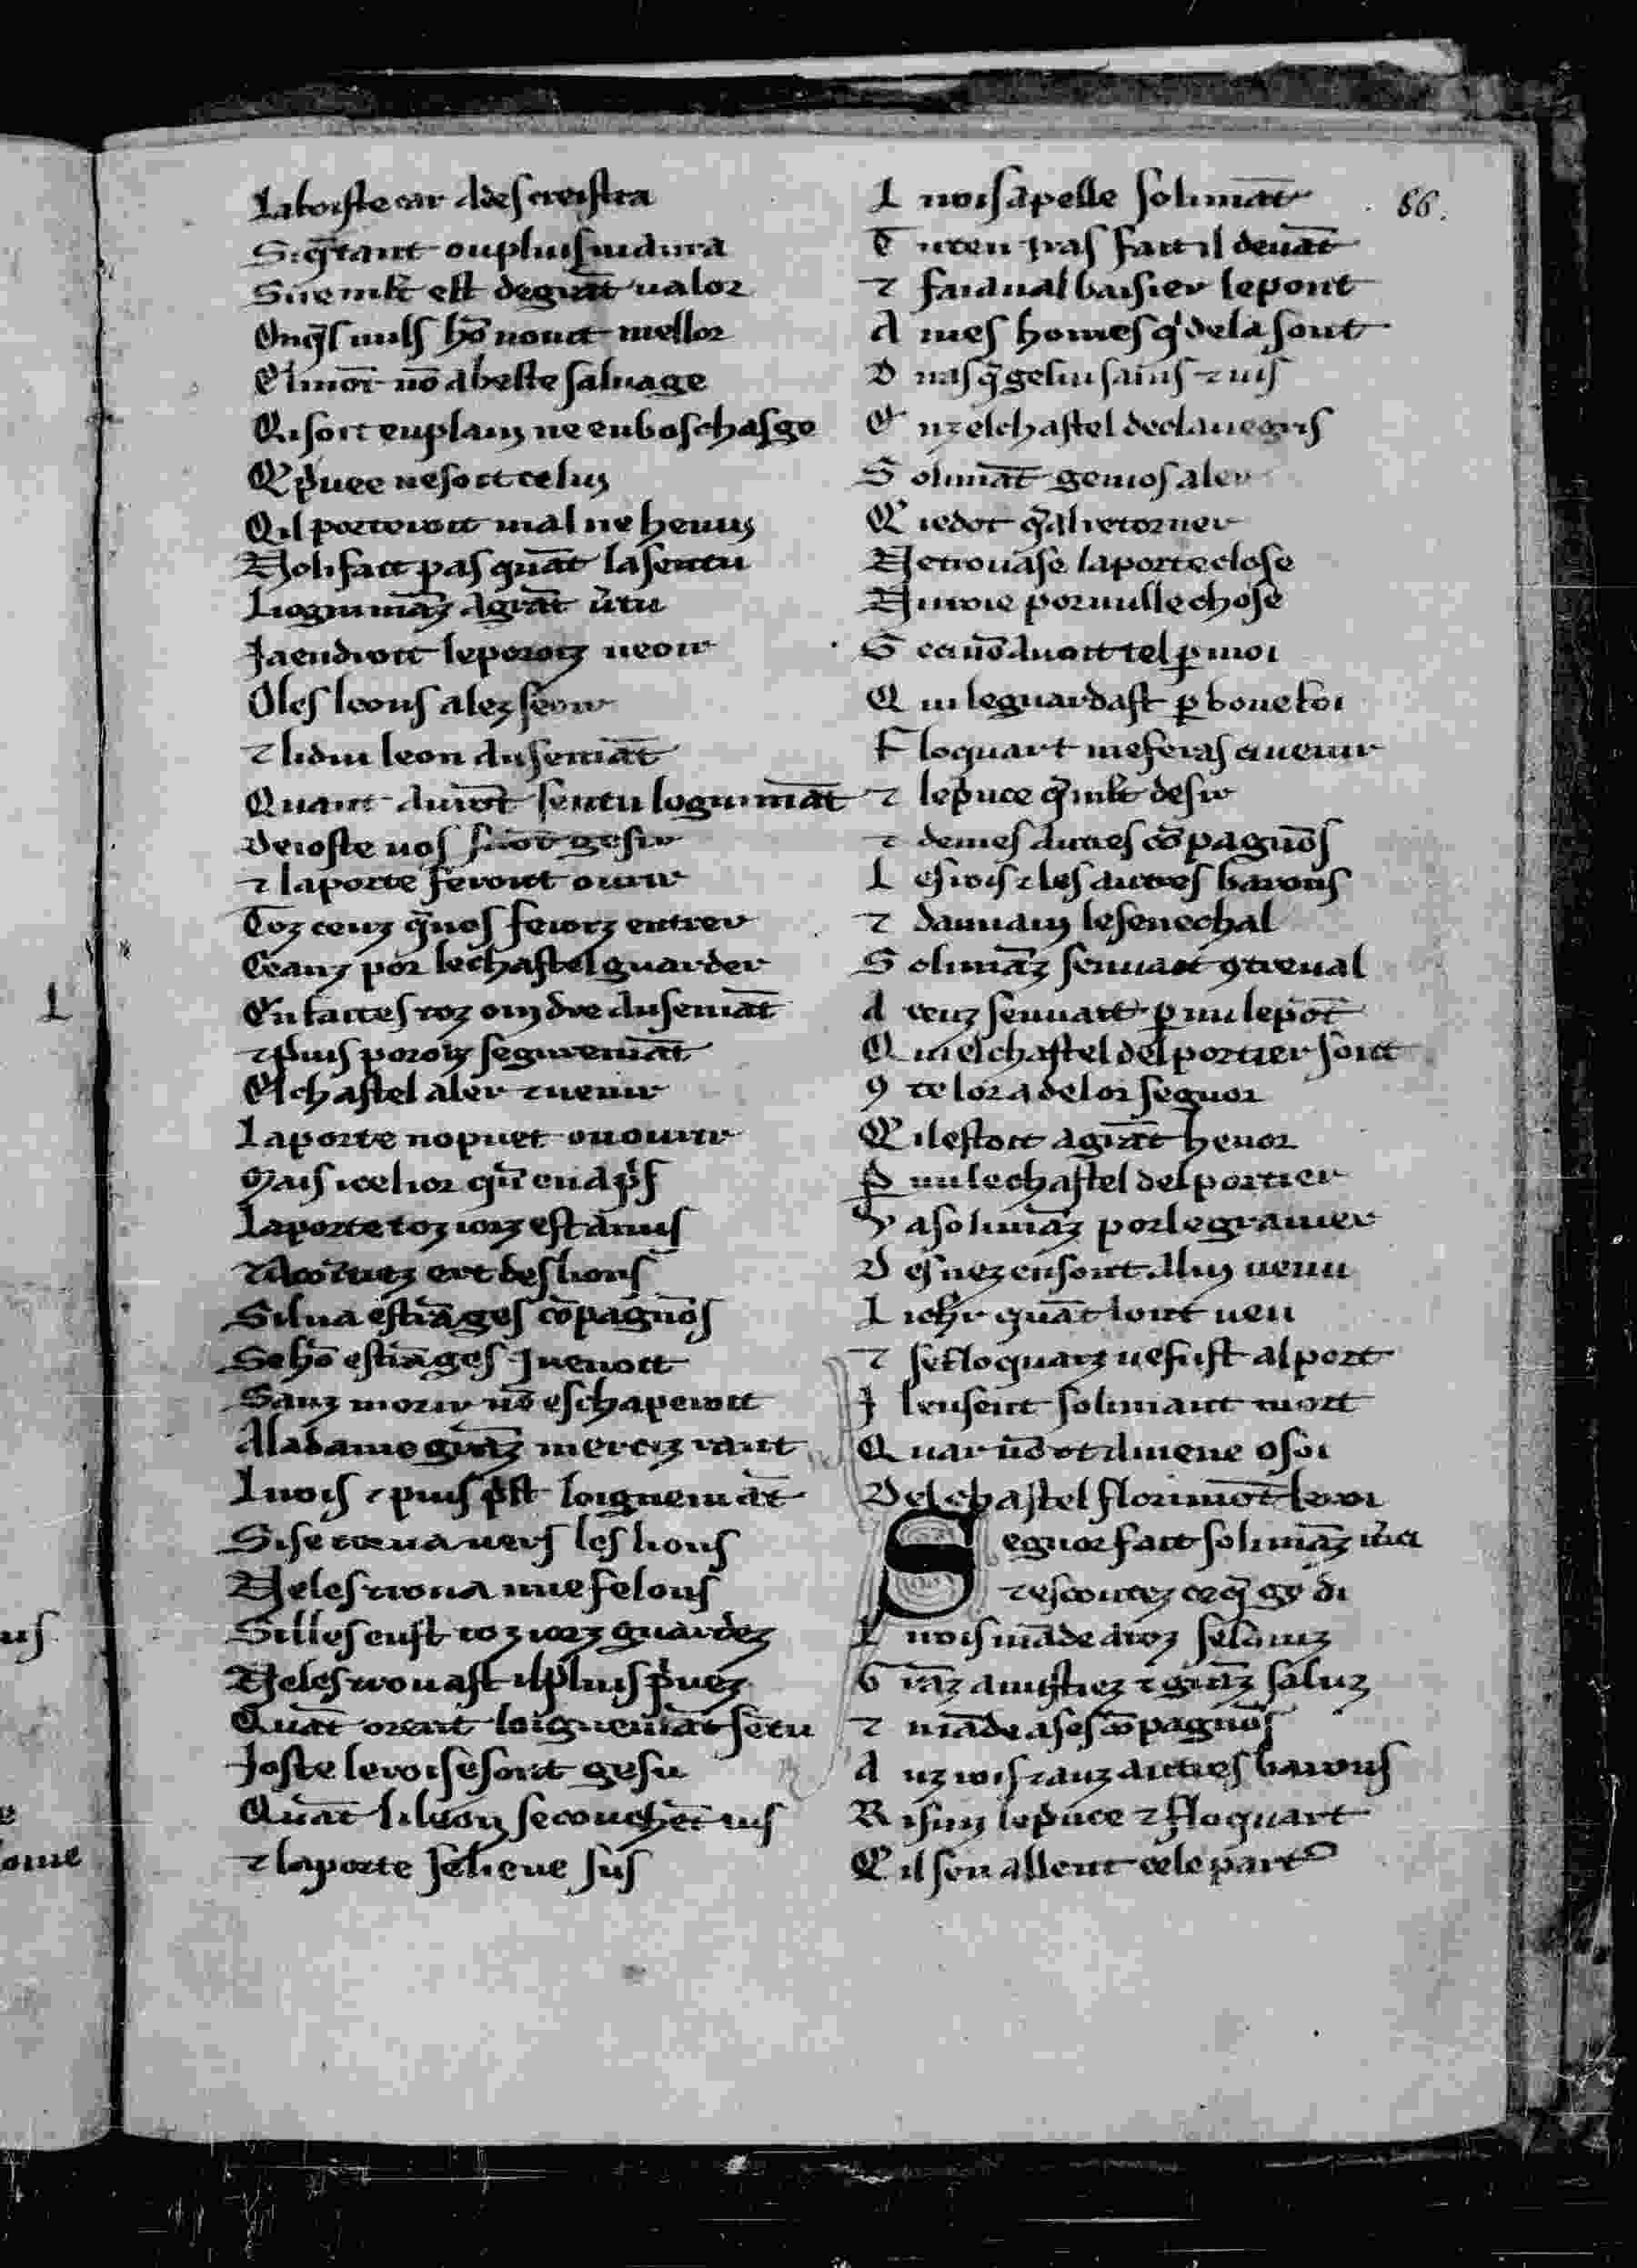 66.
La boiste car ades creistra
Si q̃ tant ou plus i naura
Sue mlt est de grãt ualor
Onq̃s nuls hõ nout mellor
El mõt nõ a beste saluage
Qui soit en plain ne en boschasge
Q̃ pͥuee ne soit celui
Qil porteroit mal ne henui
Nolifait pas quãt la sentu
Loignimãz a grãt ũtu
Ja endroit le poroiz ueoir
O les leons alez seoir
⁊ li dui leon ausemãt
Quant auiõt sentu loignimãt
De ioste uos sirõt gesir
⁊ la porte feront ourir
Toz ceuz q̃ uos feroiz entrer
Ceanz por le chastel guarder
En faites toz oindre ausemãt
⁊ puis poroiz seguremãt
El chastel aler ⁊ uenir
La porte no puet on ourir
Mais icel ior qũ en a pͥs
La porte toz iorz est a mis
Silua estrãges cõpagnõs
Se hõ estrãges i uenoit
Sanz morir nõ eschaperoit
A la dame grãz merciz rant
Li rois ⁊ puis pͥst loignemãt
Si se torna uers les lions
Ne les troua mie felons
Silles eust toz iorz guardez
Ne les trouast il plus pͥuez
Quãt orent loignemãt sẽtu
Joste le roi se sont gesu
Quãt li leon se couchẽt ius
⁊ la porte se lieue sus
L i rois apelle solimãt
T u ten iras fait il deuãt
⁊ faraual baisier le pont
A mes homes qͥ dela sont
D iras q̃ ge sui sains ⁊ uis
E nz el chastel de clauegris
S olimãt gemos aler
C iedot q̃ al retorner
Ne trouase la porte close
Ni uoie por nulle chose
S ecauõ auoit tel ꝑ moi
Q ui le guardast ꝑ bone foi
F loquart me feras a uenir
⁊ le pͥnce q̃ mlt desir
⁊ de mes autres cõpagnõs
L es rois ⁊ les autres barons
⁊ damiain le senechal
S olimãz senuait ꝯtreual
A ceuz senuait ꝑmi le põt
Q ui el chastel del portier sont
ꝯ te lor a de lor segnor
Q il estoit a grãt henor
ꝑ mi le chastel del portier
V a solimãz por le grauier
D es nez en sont a lui uenu
L i chr quãt lont ueu
⁊ se floquarz ne fust al port
J l eusent solimant mort
Q uar nõ ot amene o soi
Del chastel florimõt le roi
Segnor fait solimãz m̃ci
⁊ escoutez ce q̃ ge di
L i rois mãde a toz ses druz
G rãz amistiez ⁊ grãz saluz
⁊ mãde a ses cõpagnõs
A uz rois ⁊ auz autres barons
R isus le pͥnce ⁊ floquart
C il sen allent cele part